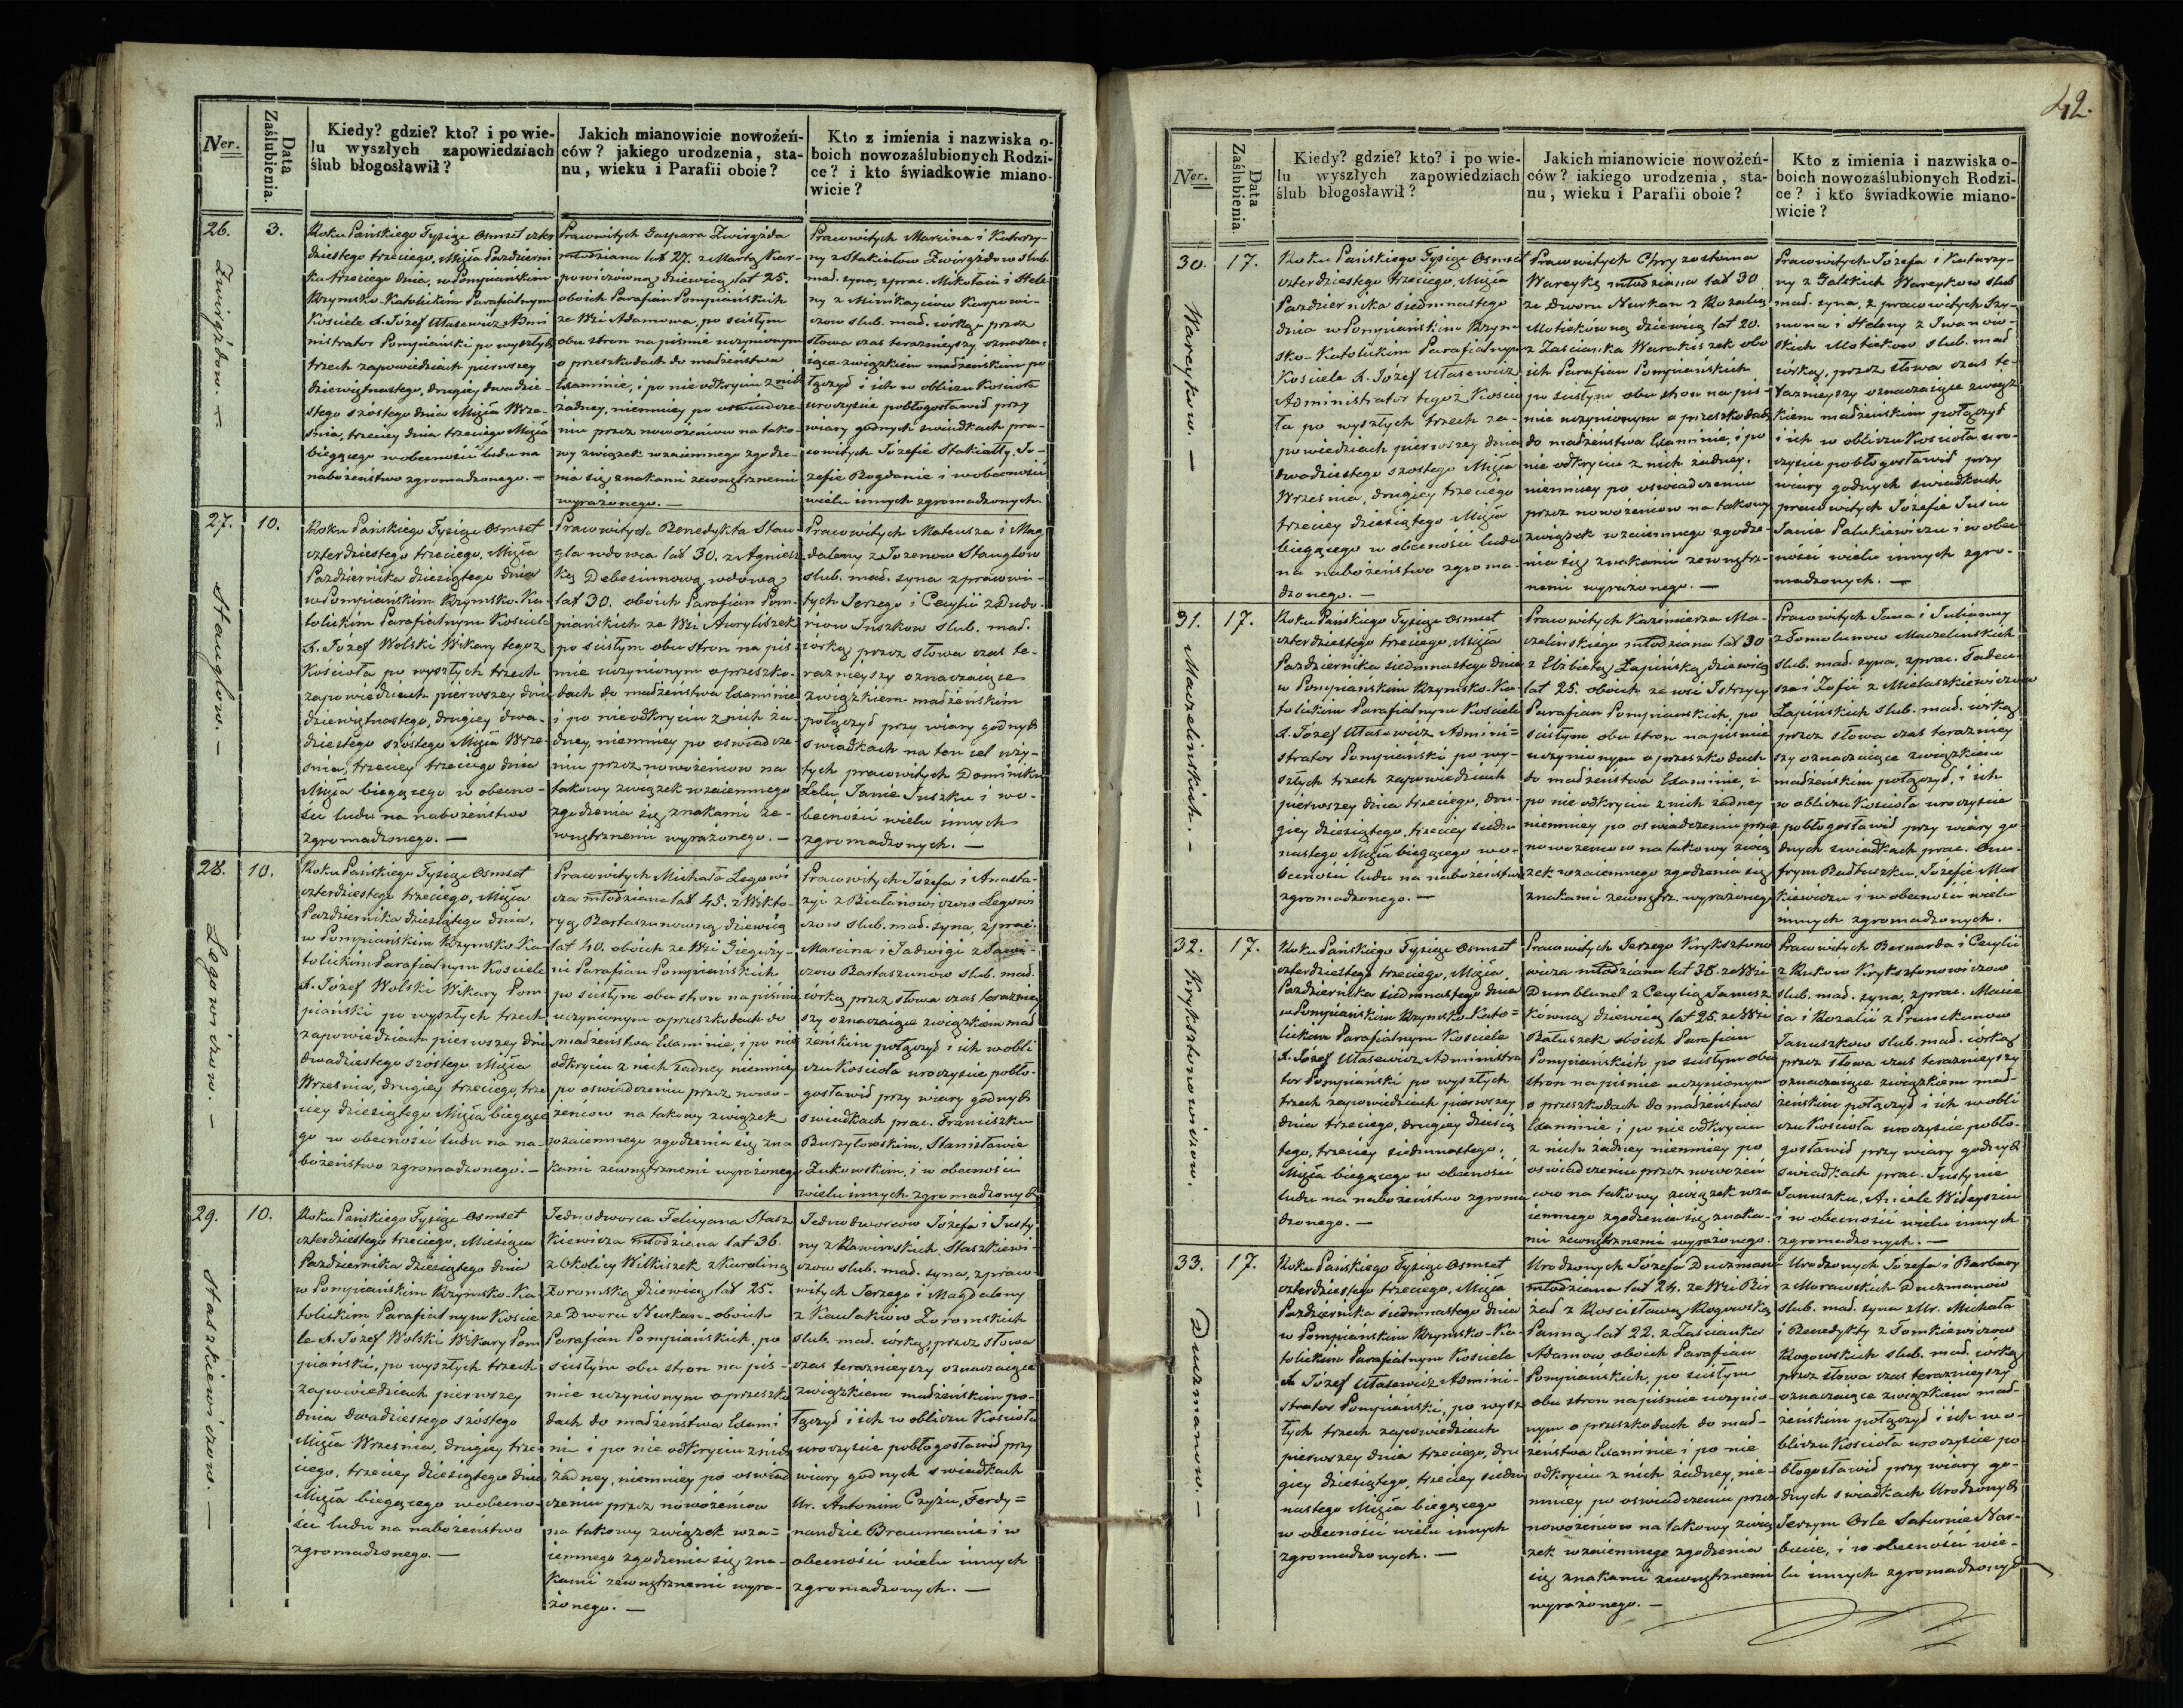 42.
Ner.
Data Zaślubienia.
Kiedy? gdzie? kto? i po wie-
lu wyszłych zapowiedziach
ślub błogosławił?
Jakich mianowicie nowożeń-
ców? jakiego urodzenia, sta-
nu, wieku i Parafii oboie?
Kto z imienia i nazwiska o-
boich nowozaślubionych Rodzi-
ce? i kto świadkowie miano-
wicie?
26.
Zwirgżdow. —
3.
Roku Pańskiego Tysiąc Osmset czter
dziestego trzeciego, Msca Październi
ka trzeciego dnia, w Pompiańskim
Rzymsko-Katolickim Parafialnym
Kościele X. Józef Ułasewicz Admi
nistrator Pompiański po wyszłych
trzech zapowiedziach pierwszey
dziewiętnastego, drugiey dwudzie-
stego szóstego dnia Msca Wrze-
śnia, trzeciey dnia trzeciego Msca
biegącego w obecności ludu na
nabożeństwo zgromadzonego. —
Pracowitych Gaspara Zwirgżda
młodziana lat 27. z Martą Kar-
powiczówną dziewicą lat 25.
oboich Parafian Pompiańskich
ze Wsi Adamowa, po scisłym
obu stron na piśmie uczynionym
o przeszkodach do małżeństwa
Examinie, i po nieodkryciu z nich
żadney, niemniey po oswiadcze-
niu przez nowożeńcow na tako-
wy związek wzaiemnego zgodze-
nia się znakami zewnętrznemi
wyrażonego. —
Pracowitych Marcina i Katarzy-
ny z Stakiałow Zwirgżdow slub.
mał. syna, z prac. Mikołaia i Hele
ny z Karpowi-
czow slub. mał. córką przez
słowa czas teraznieyszy oznacza-
iące związkiem małżeńskim po
łączył i ich w obliczu Kościoła
uroczyscie pobłogosławił przy
wiary godnych swiadkach pra-
cowitych Józefie Stakiałły, Jó-
zefie Bogdanie i w obecności
wielu innych zgromadzonych.
27.
Stauglow. —
10.
Roku Pańskiego Tysiąc Osmset
czterdziestego trzeciego, Msca
Października dziesiątego dnia
w Pompiańskim Rzymsko-Ka-
tolickim Parafialnym Kościele
X. Józef Wolski Wikary tegoż
Kościoła po wyszłych trzech
zapowiedziach pierwszey dnia
dziewiętnastego, drugiey dwu-
dziestego szóstego Msca Wrze-
śnia, trzeciey trzeciego dnia
Msca biegącego w obecno-
ści ludu na nabożeństwo
zgromadzonego. —
Pracowitych Benedykta Stau-
gla wdowca lat 30. z Agniesz
ką Debesiunową wdową
lat 30. oboich Parafian Pom-
piańskich ze Wsi Auryliszek
po scisłym obu stron na piś
mie uczynionym o przeszko-
dach do małżeństwa Examinie
i po nieodkryciu z nich ża-
dney, niemniey po oswiadcze-
niu przez nowożeńcow na
takowy związek wzaiemnego
zgodzenia się znakami ze-
wnętrznemi wyrażonego. —
Pracowitych Mateusza i Mag
daleny z Stauglow
slub. mał. syna z pracowi-
tych Jerzego i Cecylii z Dudo-
riow Juszkow slub. mał.
córką przez słowa czas te-
raznieyszy oznaczaiące
związkiem małżeńskim
połączył przy wiary godnych
swiadkach na ten cel uży-
tych pracowitych Dominiku
Lelu Janie Juszku i w o-
becności wielu innych
zgromadzonych. —
28.
Legowiczow. —
10.
Roku Pańskiego Tysiąc Osmset
czterdziestego trzeciego, Msca
Października dziesiątego dnia,
w Pompiańskim Rzymsko-Ka-
tolickim Parafialnym Kościele
X. Józef Wolski Wikary Pom
piański po wyszłych trzech
zapowiedziach pierwszey dnia
dwudziestego szóstego Msca
Września, drugiey trzeciego, trze
ciey dziesiątego Msca biegące
go w obecności ludu na na-
bożeństwo zgromadzonego. —
Pracowitych Michała Legowi
cza młodziana lat 45. z Wikto-
ryą Bartaszunową dziewicą
lat 40. oboich ze Wsi
Parafian Pompiańskich
po scisłym obu stron na piśmie
uczynionym o przeszkodach do
małżeństwa Examinie, i po nie
odkryciu z nich żadney niemniey
po oswiadczeniu przez nowo-
żeńcow na takowy związek
wzaiemnego zgodzenia się zna
kami zewnętrznemi wyrażonego
Pracowitych Józefa i Anasta-
zyi z Białonowiczow Legowi
czow slub. mał. syna, z prac.
Marcina i Jadwigi z Sawi-
czow Bartaszunow slub. mał.
córką przez słowa czas teraźniey
szy oznaczaiące związkiem mał
żeńskim połączył i ich w obli
czu Kościoła uroczyscie pobło-
gosławił przy wiary godnych
swiadkach prac. Franciszku
Burzyłowskim, Stanisławie
Żukowskim, i w obecności
wielu innych zgromadzonych
29.
Staszkiewiczow. —
10.
Roku Pańskiego Tysiąc Osmset
czterdziestego trzeciego, Miesiąca
Października dziesiątego dnia
w Pompiańskim Rzymsko-Ka-
tolickim Parafialnym Koscie
le X. Józef Wolski Wikary Pom
piański, po wyszłych trzech
zapowiedziach pierwszey
dnia dwudziestego szóstego
Msca Września, drugiey trze-
ciego, trzeciey dziesiątego dnia
Msca biegącego w obecno-
ści ludu na nabożeństwo
zgromadzonego. —
Jednodworca Felicyana Stasz
kiewicza młodziana lat 36.
z Okolicy Wilkiszek z Karoliną
Zoromską dziewicą lat 25.
ze Dworu Nurkan oboich
Parafian Pompiańskich, po
scisłym obu stron na piś-
mie uczynionym o przeszko
dach do małżeństwa Exami
nie i po nie odkryciu z nich
żadney, niemniey po oswiad
czeniu przez nowożeńcow
na takowy związek wza=
iemnego zgodzenia się zna-
kami zewnętrznemi wyra-
żonego. —
Jednodworcow Józefa i Justy
ny z Rawinskich Staszkiewi-
czow slub. mał. syna, z praco-
witych Jerzego i Magdaleny
z Kaulakiow Zoromskich
slub. mał. córką, przez słowa
czas teraznieyszy oznaczaiące
związkiem małżeńskim po-
łączył i ich w obliczu Kościoła
uroczyscie pobłogosławił przy
wiary godnych swiadkach
Ur. Antonim Czyżu, Ferdy=
nandzie Braumanie i w
obecności wielu innych
zgromadzonych. —
Ner.
Data Zaślubienia.
Kiedy? gdzie? kto? i po wie-
lu wyszłych zapowiedziach
ślub błogosławił?
Jakich mianowicie nowożeń-
ców? iakiego urodzenia, sta-
nu, wieku i Parafii oboie?
Kto z imienia i nazwiska o-
boich nowozaślubionych Rodzi-
ce? i kto świadkowie miano-
wicie?
30.
Wareykow —
17.
Roku Pańskiego Tysiąc Osmset
czterdziestego trzeciego, Msca
Października siedmnastego
dnia w Pompiańskim Rzym
sko-Katolickim Parafialnym
Kościele X. Józef Ułasewicz
Administrator tegoż Koscio
ła po wyszłych trzech za-
powiedziach pierwszey dnia
dwudziestego szostego Msca
Września, drugiey trzeciego
trzeciey dziesiątego Msca
biegącego w obecności ludu
na nabożeństwo zgroma-
dzonego. —
Pracowitych Chryzostoma
Wareykę młodziana lat 30
ze Dworu Nurkan z Rozalią
Motiekówną dziewicą lat 20.
z Zascianka Warakiszek obo
ich Parafian Pompiańskich
po scisłym obu stron na piś-
mie uczynionym o przeszkodach
do małżeństwa Examinie, i po
nie odkryciu z nich żadney,
niemniey po oswiadczeniu
przez nowożeńcow na takowy
związek wzaiemnego zgodze-
nia się znakami zewnętrz-
nemi wyrażonego. —
Pracowitych Józefa i Katarzy-
ny z Galskich Wareykow slub
mał. syna, z pracowitych Szy-
mona i Heleny z Iwanow-
skich Motiekow slub. mał
córką, przez słowa czas te-
raznieyszy oznaczaiące związ
kiem małżeńskim połączył
i ich w obliczu Kościoła uro-
czyscie pobłogosławił przy
wiary godnych swiadkach
pracowitych Józefie Jusiu
Janie Palukiewiczu i w obec
ności wielu innych zgro-
madzonych. —
31.
Maczelinskich. —
17.
Roku Pańskiego Tysiąc Osmset
czterdziestego trzeciego, Msca
Października siedmnastego dnia
w Pompiańskim Rzymsko-Ka
tolickim Parafialnym Kościele
X. Józef Ułasewicz Admini=
strator Pompiański po wy-
szłych trzech zapowiedziach
pierwszey dnia trzeciego, dru-
giey dziesiątego, trzeciey siedm
nastego Msca biegącego w o-
becności ludu na nabożeństwo
zgromadzonego. —
Pracowitych Kazimierza Ma-
czelińskiego młodziana lat 30
z Elzbietą Łapińską dziewicą
lat 25. oboich ze wsi
Parafian Pompianskich, po
scisłym obu stron na piśmie
uczynionym o przeszkodach
do małżeństwa Examinie, i
po nie odkryciu z nich żadney
niemniey po oswiadczeniu przez
nowożeńcow na takowy związ
zek wzaiemnego zgodzenia się
znakami zewnętrz. wyrażonego
Pracowitych Jana i Julianny
z Tomolunow Maczelinskich
slub. mał. syna, z prac. Tadeu-
sza i Zofii z Mielaszkiewiczow
Łapińskich slub. mał. córką
przez słowa czas teraźniey
szy oznaczaiące związkiem
małżeńskim połączył, i ich
w obliczu Kościoła uroczyscie
pobłogosławił przy wiary go-
dnych swiadkach prac. Onu-
frym Badłuszku, Józefie Mar
kiewiczu i w obecności wielu
innych zgromadzonych.
32.
Kryksztonowiczow.
17.
Roku Pańskiego Tysiąc Osmset
czterdziestego trzeciego, Msca
Października siedmnastego dnia
w Pompiańskim Rzymsko-Kato=
lickim Parafialnym Kościele
X. Józef Ułasewicz Administra
tor Pompiański po wyszłych
trzech zapowiedziach pierwszey
dnia trzeciego, drugiey dziesią
tego, trzeciey siedmnastego,
Msca biegącego w obecności
ludu na nabożeństwo zgroma
dzonego. —
Pracowitych Jerzego Kryksztono
wicza młodziana lat 38. ze Wsi
Dumblunel z Cecylią Janusz
kowną dziewicą lat 25. ze Wsi
Bałuszek oboich Parafian
Pompiańskich, po scisłym obu
stron na piśmie uczynionym
o przeszkodach do małżeństwa
Examinie i po nie odkryciu
z nich żadney niemniey po
oswiadczeniu przez nowożeń
cow na takowy związek wza
iemnego zgodzenia się znaka-
mi zewnętrznemi wyrażonego.
Pracowitych Bernarda i Cecylii
z Rukow Kryksztonowiczow
slub. mał. syna, z prac. Macie
ja i Rozalii z Prunckunow
Januszkow slub. mał. córką
przez słowa czas teraznieyszy
oznaczaiące związkiem mał-
żeńskim połączył i ich w obli
czu Kościoła uroczyscie pobło-
gosławił przy wiary godnych
swiadkach prac. Justynie
Januszku, Aniele
i w obecności wielu innych
zgromadzonych. —
33.
Duczmanow. —
17.
Roku Pańskiego Tysiąc Osmset
czterdziestego trzeciego, Msca
Października siedmnastego dnia
w Pompiańskim Rzymsko-Ka-
tolickim Parafialnym Kościele
X Józef Ułasewicz Admini-
strator Pompiański, po wysz
łych trzech zapowiedziach
pierwszey dnia trzeciego, dru
giey dziesiątego, trzeciey siedm
nastego Msca biegącego
w obecności wielu innych
zgromadzonych. —
Urodzonych Józefa Duczmana
młodziana lat 24. ze Wsi Bir
żań z Rościsławą Rogowską
Panną lat 22. z Zascianka
Adamow oboich Parafian
Pompiańskich, po scisłym
obu stron na piśmie uczynio-
nym o przeszkodach do mał-
żeństwa Examinie i po nie
odkryciu z nich żadney, nie-
mniey po oswiadczeniu przez
nowożeńcow na takowy związ
zek wzaiemnego zgodzenia
się znakami zewnętrznemi
wyrażonego. —
Urodzonych Józefa i Barbary
z Morawskich Duczmanow
slub. mał. syna z Ur. Michała
i Benedykty z Tomkiewiczow
Rogowskich slub. mał. córką
przez słowa czas teraznieyszy
oznaczaiące związkiem mał-
żeńskim połączył i ich w o-
bliczu Kościoła uroczyscie po-
błogosławił przy wiary go-
dnych swiadkach Urodzonych
Jerzym Orle Saturnie Nar-
bucie, i w obecności wie-
lu innych zgromadzonych